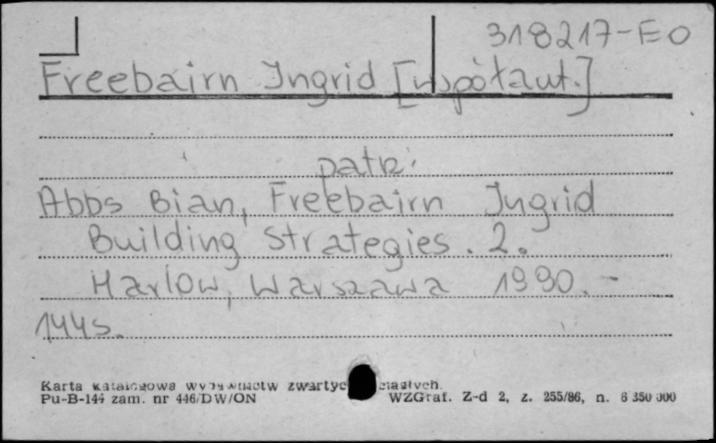 318217-EO
Freebairn Ingrid [współaut.]
patrz:
Abbs Bian, Freebairn Ingrid
Building Strategies. 2.
Harlow, Warszawa 1990.-
144s.
Karta katalogowa wydawnictw zwartych ciągłych.
Pu-B-144 zam. nr 446/DW/ON WZGraf. Z-d 2, z. 255/86, n. 6 350 000